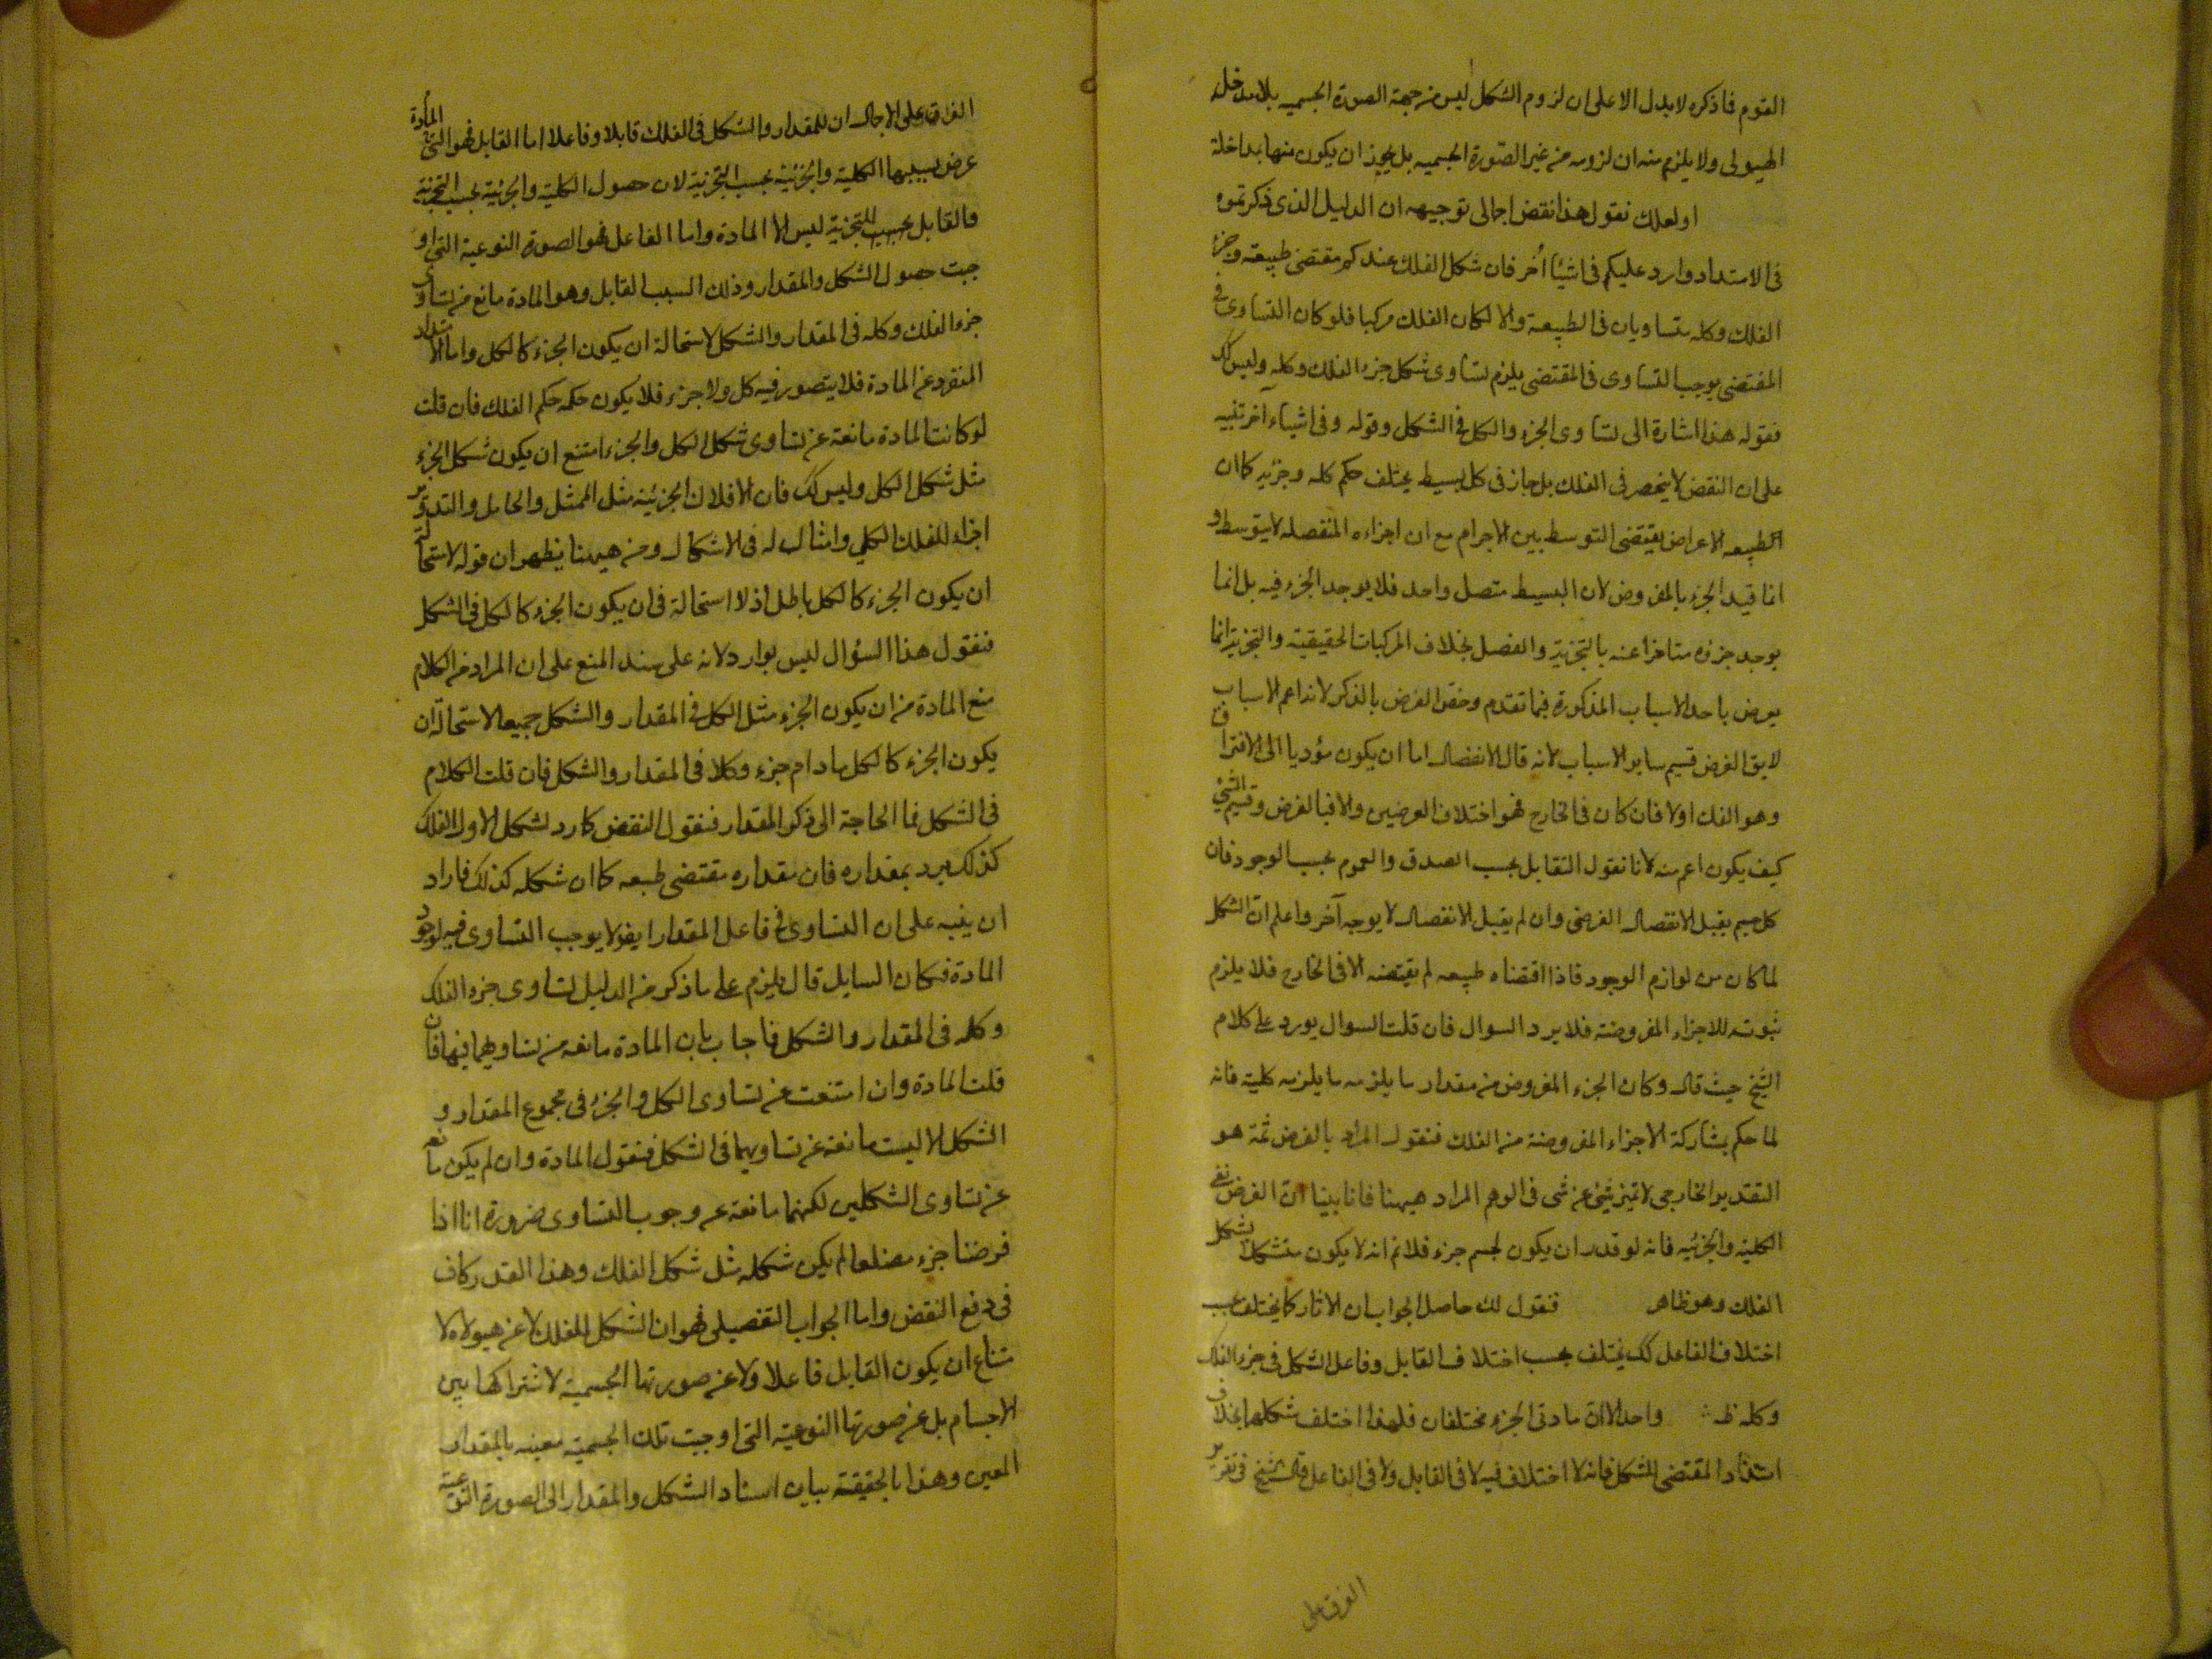 القوم فاذكره لا يدل الا على ان لزوم الشكل ليس من جهة الصورة الجسميه بلا مدخل
الهيولى ولا يلزم منه ان لزومه من غير الصورة الجسميه بل يجوز ان يكون منها بمداخلة
او لعلك نقول هذا نقض اجمالى توجيهه ان الدليل الذى ذكرتموه
فى الامتداد وارد عليكم فى اشيئا أخر فان شكل الفلك عندكم مقتضى طبيعته وجزء
الفلك وكله متساويان فى الطبيعة والا لكان الفلك مركبا فلو كان التساوى فى
المقتضى يوجب التساوى فى المقتضى يلزم تساوى شكل جزء الفلك وكله وليس كك
فقوله هذا اشارة الى تساوى الجزء والكل فى الشكل وقوله وفى اشياء آخر تنبيه
على ان النقض لا ينحصر فى الفلك بل جاز فى كل بسيط يختلف حكم كله وجزئيه كما ان
الطبيعه الاعراض يقتضى التوسط بين الاجرام مع ان اجزاءه المنفصله لا يتوسط و
انما قيد الجزء بالمفروض لان البسيط متصل واحد فلا يوجد الجزء فيه بل انما
يوجد جزؤه متاخرا عنه بالتجزية والفصل بخلاف المركبات الحقيقية والتجزية انما
يعرض باحد الاسباب المذكورة فيما تقدم وخص الفرض بالذكر لانه اعم الاسباب
لا يق الفرض قسيم ساير الاسباب لانه قال الانفصال اما ان يكون مؤديا الى الافتراق
وهو الفك اولا فان كان فى الخارج فهو اختلاف العرضين والا فبالفرض وقسيم الشئ
كيف يكون اعم منه لانا نقول التقابل بحسب الصدق والعموم بحسب الوجود فان
كل جسم يقبل الانفصال الفرضى وان لم يقبل الانفصال لا يوجه آخر واعلم ان الشكل
لما كان من لوازم الوجود فاذا اقتضاه طبيعه لم يقتضه الا فى الخارج فلا يلزم
ثبوته للاجزاء المفروضة فلا يرد السوال فان قلت السوال يورد على كلام
الشيخ حيث قال وكان الجزء المفروض من مقدار ما يلزمه ما يلزمه كلية فانه
لما حكم بمشاركة الاجزاء المفروضة من الفلك فنقول المراد بالفرض ثمة هو
التقدير الخارجى لا تميز شئ عن شى فى الوهم المراد هيهنا فانا بينا ان الفرض نفى
الكلية والجزئيه فانه لو قدر ان يكون لجسم جزء فلا تم انه لا يكون متشكلا بشكل
الفلك وهو ظاهر فنقول لك حاصل الجواب ان الاثار كما يختلف بحسب
اختلاف الفاعل كك يختلف بحسب اختلاف القابل وفاعل الشكل فى جزء الفلك
وكله واحد الا ان مادتى الجزء مختلفان فلهذا اختلف شكلهما بخلاف
امتداد المقتضى للشكل فانه لا اختلاف فيه لا فى القابل ولا فى الفاعل قال الشيخ فى تقرير
الفرق على
الفرق على الاجمال ان للمقدار والشكل فى الفلك قابلا وفاعلا اما القابل فهو المادة التى
عرض بسببها الكلية والجزئية بحسب التجزية لان حصول الكلية والجزئية بحسب التجزية
فالقابل للتجزية ليس الا المادة واما الفاعل فهو الصورة النوعية التى او
جبت حصول الشكل والمقدار وذلك السبب القابل وهو المادة مانع من تساوى
جزء الفلك وكله فى المقدار والشكل لاستحالة ان يكون الجزء كالكل واما الامتداد
المنفرد عن المادة فلا يتصور فيه كل ولا جزء فلا يكون حكمه حكم الفلك فان قلت
لو كانت المادة مانعة عن تساوى شكل الكل والجزء امتنع ان يكون شكل الجزء
مثل شكل الكل وليس كك فان الافلاك الجزئية مثل الممثل والحامل والتدوير
اجزاء للفلك الكلى وامثال له فى الاشكال ومن هيهنا يظهر ان قوله لاستحالة
ان يكون الجزء كالكل باطل اذ لا استحالة فى ان يكون الجزء كالكل فى الشكل
فنقول هذا السؤال ليس بوارد لانه على سند المنع على ان المراد من الكلام
منع المادة من ان يكون الجزء مثل الكل فى المقدار والشكل جميعا لاستحالة ان
يكون الجزء كالكل مادام جزء وكلا فى المقدار والشكل فان قلت الكلام
فى الشكل فما الحاجة الى ذكر المقدار فنقول النقض كما رد لشكل الاول الفلك
كذلك يرد بمقداره فان مقداره مقتضى طبعه كما ان شكله كذلك فاراد
ان ينبه على ان التساوى فى فاعل المقدار ايضا لا يوجب التساوى فيه لوجود
المادة فكان السايل قال يلزم على ما ذكر من الدليل تساوى جزء الفلك
وكله فى المقدار والشكل فاجاب بان المادة مانعه من تساويهما فيها فان
قلت المادة وان امتنعت عن تساوى الكل والجزء فى مجموع المقدار و
الشكل الا ليست مانعة عن تساويهما فى الشكل فنقول المادة وان لم يكن مانعه
عن تساوى الشكلين لكنها مانعة عن وجوب التساوى ضرورة انا اذا
فرضنا جزء مضلعا لم يكن شكله مثل شكل الفلك وهذا القدر كاف
فى دفع النقض واما الجواب التفصيلى فهو ان الشكل للفلك لا عن هيولاه لا
متناع ان يكون القابل فاعلا ولا عن صورتها الجسمية لاشتراكها بين
الاجسام بل عن صورتها النوعية التى اوجبت تلك الجسمية معينه بالمقدار
المعين وهذا بالحقيقة بيان اسناد الشكل والمقدار الى الصورة النوعية